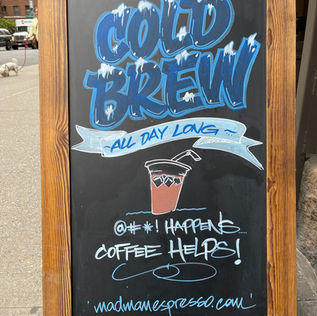 COLD
BREW
~ALL DAY LONG~
@#*! HAPPENS
COFFEE HELPS!
'madmanespresso.com'